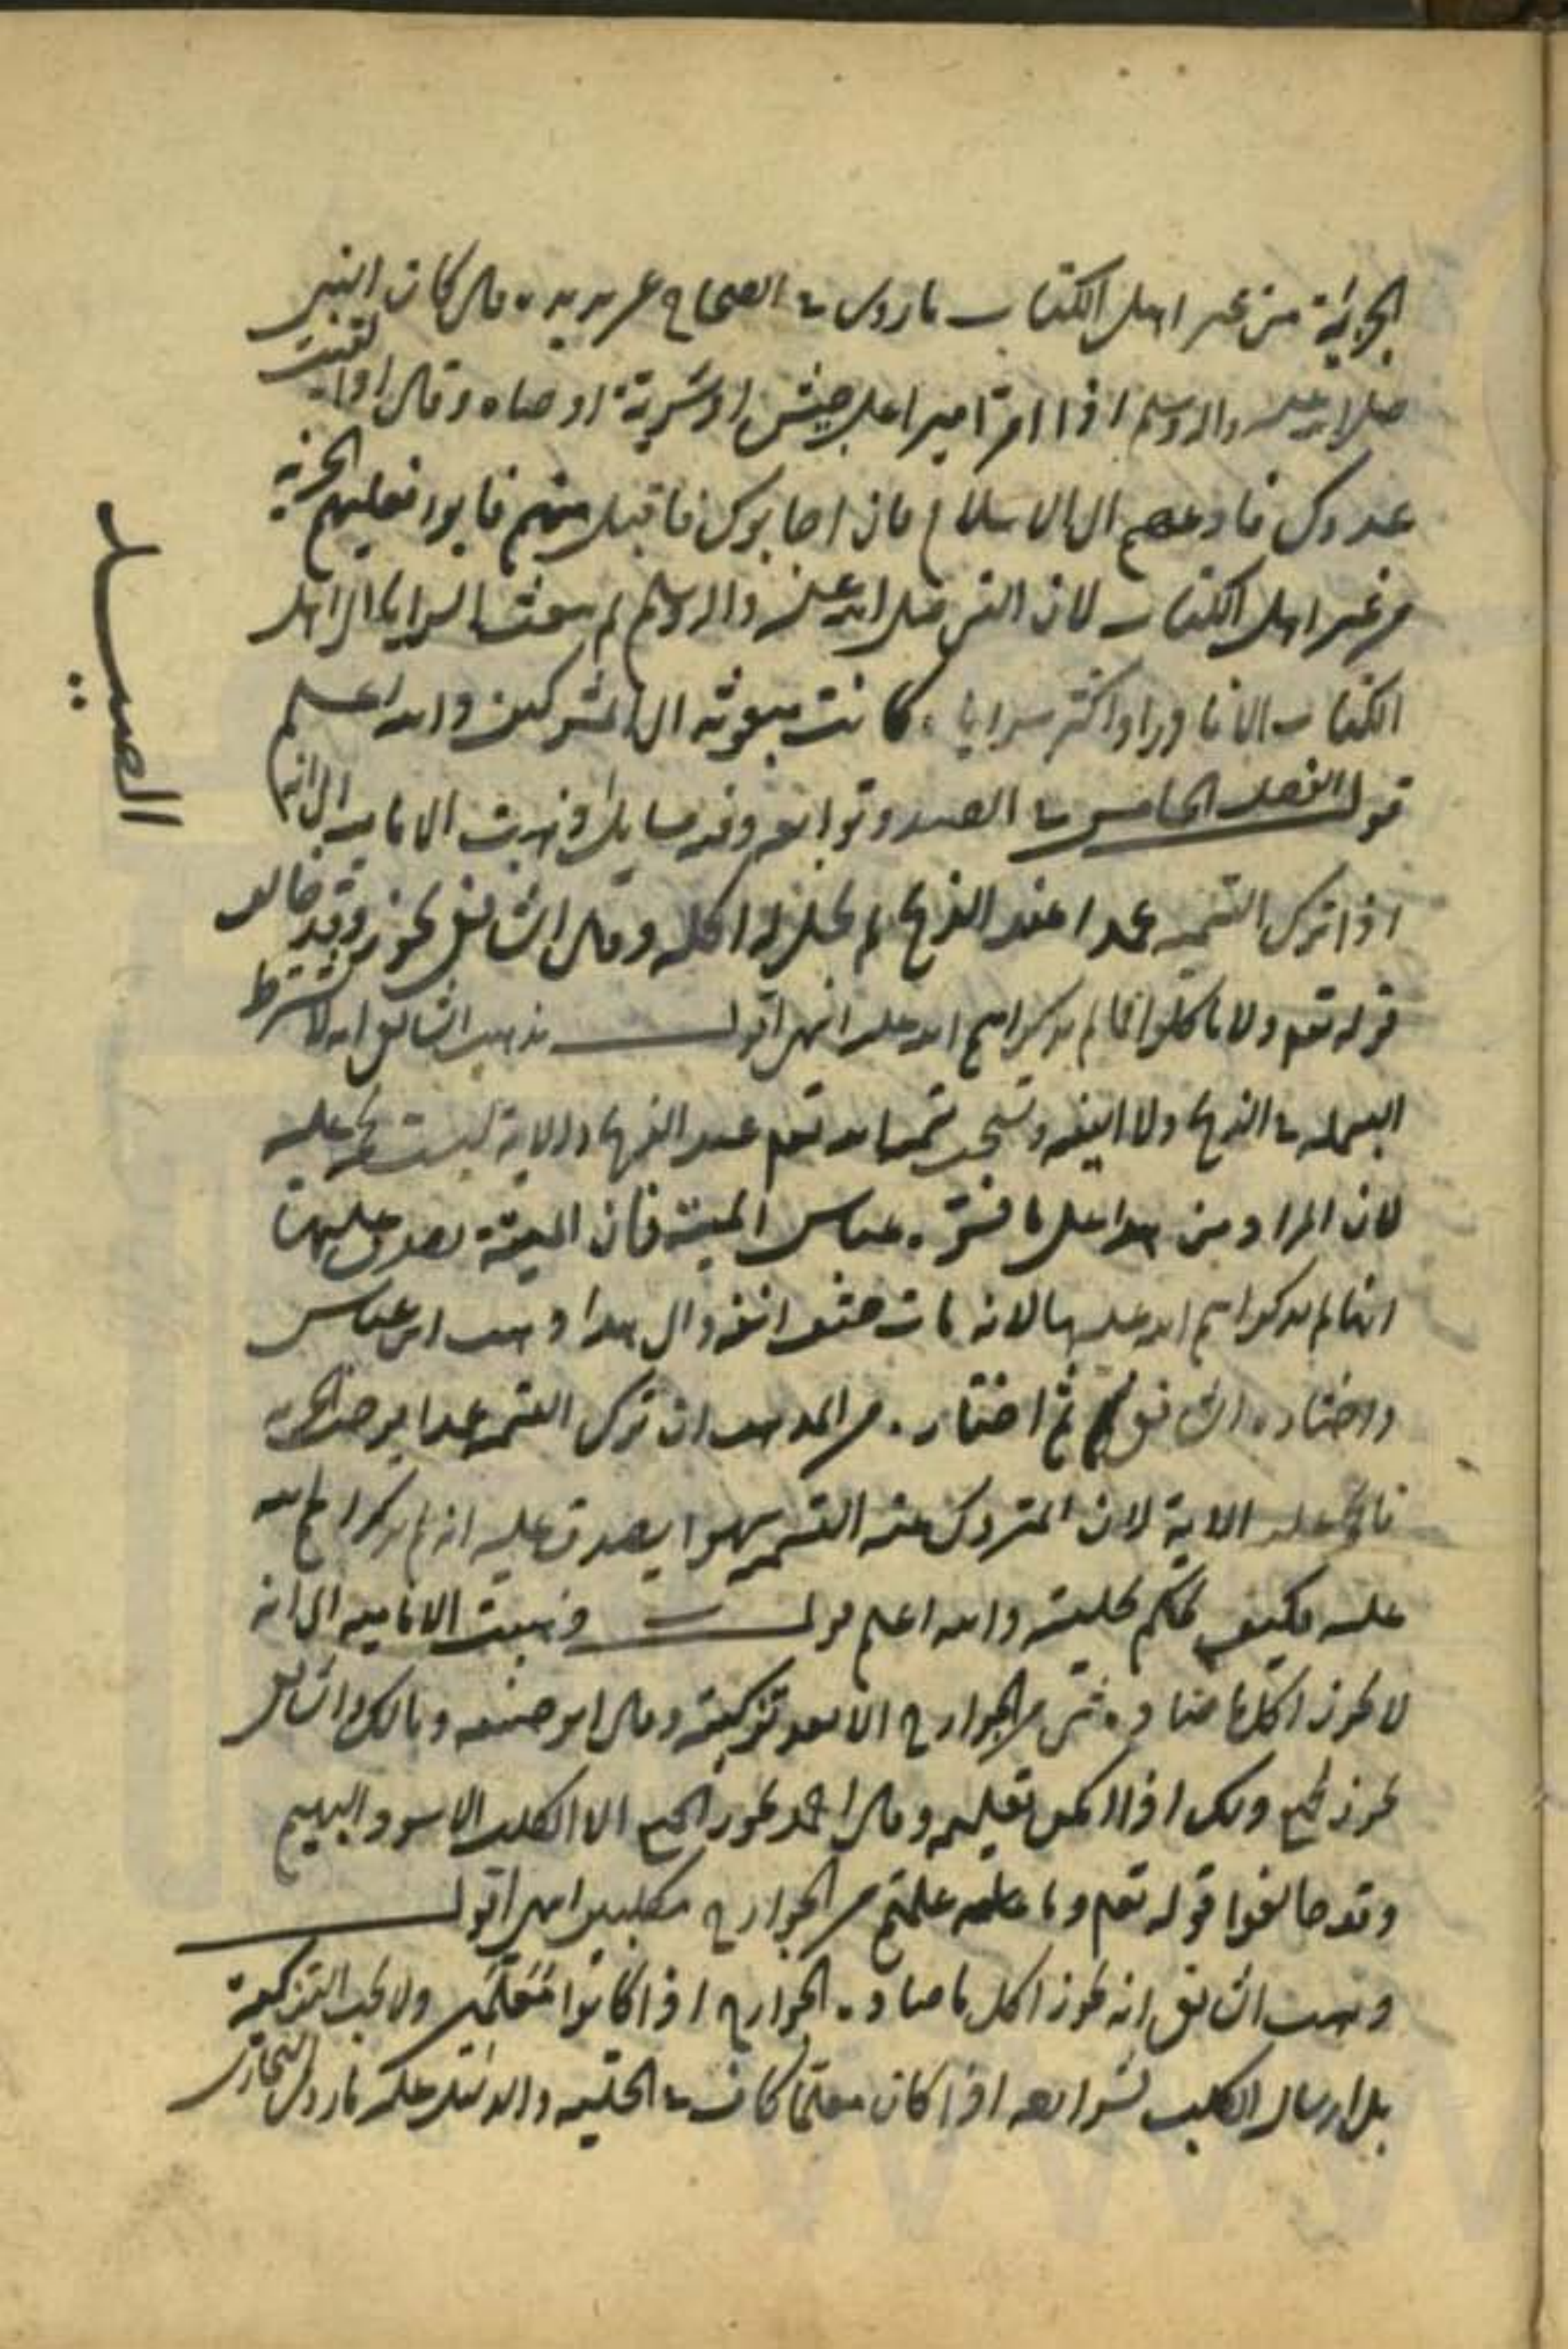 الجزية من غير اهل الكتاب ما روى في الصحاح عن بريده قال كان النبي
صلى الله عليه واله وسلم اذا امر اميرا على جيش او سرية اوصاه وقال اذا لقيت
عدوك فادعهم الى الاسلام فان اجابوك فاقبل منهم فان ابوا فعليهم الجزيه
من غير اهل الكتاب لان النبي صلى الله عليه واله وسلم لم يبعث السرايا الى اهل
الكتاب الا نادرا واكثر سراياه كانت مبعوثه الى المشركين والله اعلم
قول الفصل الخامس في الصيد وتوابعه وفيه مسايل ذهبت الاماميه الى انه
اذا ترك التسميه عمدا عند الذبح لم يحل له اكله وقال الشافعي يجوز وقد خالف
قوله تعم ولا تاكلوا مما لم يذكر اسم الله عليه انتهى اقول مذهب الشافعي انه لا يشترط
البسمله في الذبح ولا النية وتستحب تسميه الله تعم عند الذبح والاية ليست بحجه عليه
لان المراد من هذا على ما فسره عباس الميتة فان الميتة يصدق عليها
انها لم يذكر اسم الله عليها لانه مات حتف انفه والى هذا ذهب ابن عباس
واختاره الشافعي ثم اختاره من المذهب ان ترك التسميه عمدا
الاية لان المتروك عنه التسميه سهوا يصدق عليه انه لم يذكر اسم الله
عليه فكيف يحكم بحليته والله اعلم قول وذهبت الاماميه الى انه
لا يجوز اكل ما صاده شي من الجوارح الا بعد تزكيته وقال ابو حنيفه ومالك والشافعي
يجوز الجميع ذلك اذا امكن تعليمه وقال احمد يجوز الجميع الا الكلب الاسود البهيم
وقد خالفوا قوله تعم وما علمتم من الجوارح مكلبين انتهى اقول
مذهب الشافعي انه يجوز اكل ما صاده الجوارح اذا كانوا معلمين ولا يجب التزكية
بل ارسال الكلب بشرايطه اذا كان معلما كاف في الحليه والدليل عليه ما روى البخارى
الصيد